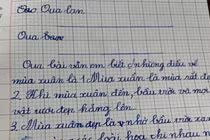 Qua lan
Qua
Qua bài văn em biết những điều về
mùa xuân là: Mùa xuân là mùa rất đẹp
2. Khi mùa xuân đến, bầu trời và mọi
vật tươi đẹp hẳng lên.
3. Mùa xuân đẹp là nhờ bầu trời xanh
loài hoa chi nhau n